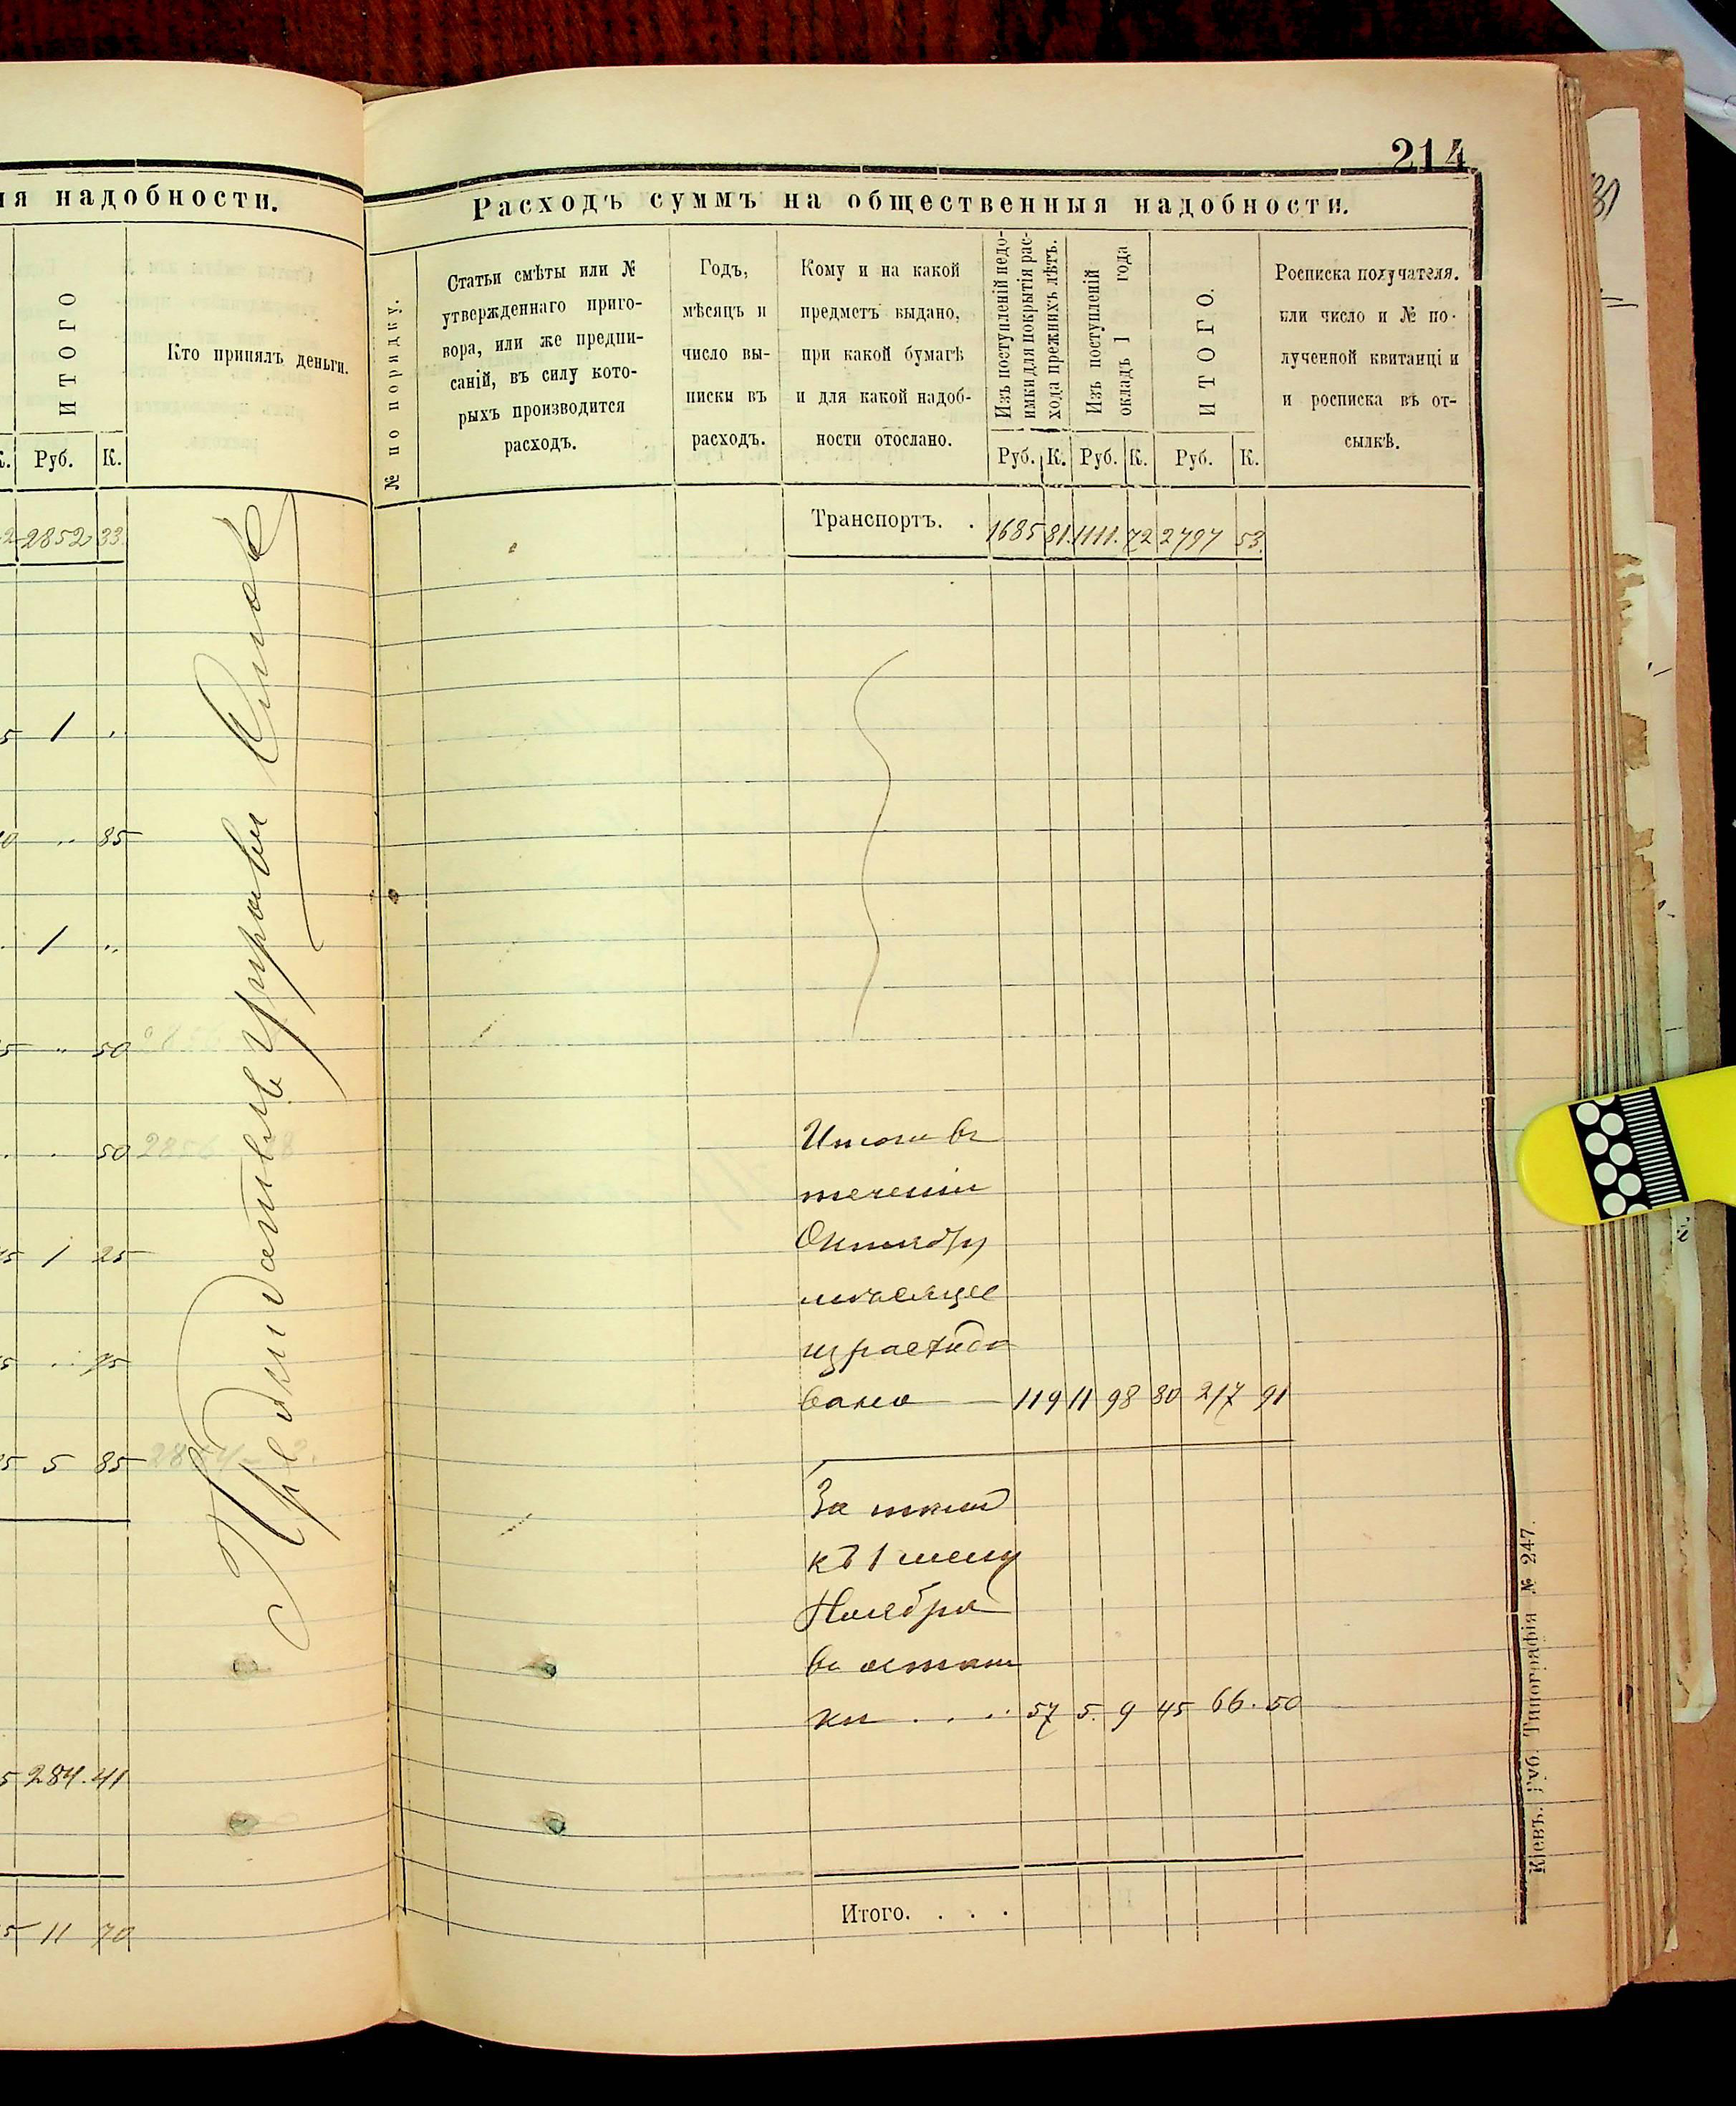 ія надобности.
ИТОГО
Кто принялъ деньги.
К. Руб. К.
2 2852 33.
5 1 "
0 " 85
1 "
5 " 50
50
5 1 25
5 " 75
5 5 85
5 284. 41
5 11 70
Предсѣдатель Управы
214
Расходъ суммъ на общественныя надобности.
№ по порядку.
Статьи смѣты или №
утвержденнаго приго-
вора, или же предпи-
саній, въ силу кото-
рыхъ производится
расходъ.
Годъ,
мѣсяцъ и
число вы-
писки въ
расходъ.
Кому и на какой
предметъ выдано,
при какой бумагѣ
и для какой надоб-
ности отослано.
Изъ поступленій недо-
имки для покрытія рас-
хода прежнихъ лѣтъ.
Изъ поступленій
окладъ 1 года
ИТОГО.
Росписка получателя.
или число и № по-
лученной квитанці и
и росписка въ от-
сылкѣ.
Руб. К. Руб. К. Руб. К.
Транспортъ. . 1685 81. 1111. 72 2797 53.
Итого въ
теченіи
Октября
мѣсяца
израсходо
вано — 119 11 98 80 217 91
За тѣмъ
къ 1 числу
Ноября
въ остат
кѣ . . . 57 5. 9 45 66. 50
Итого. . . .
Кіевъ. Губ. Типографія № 247.